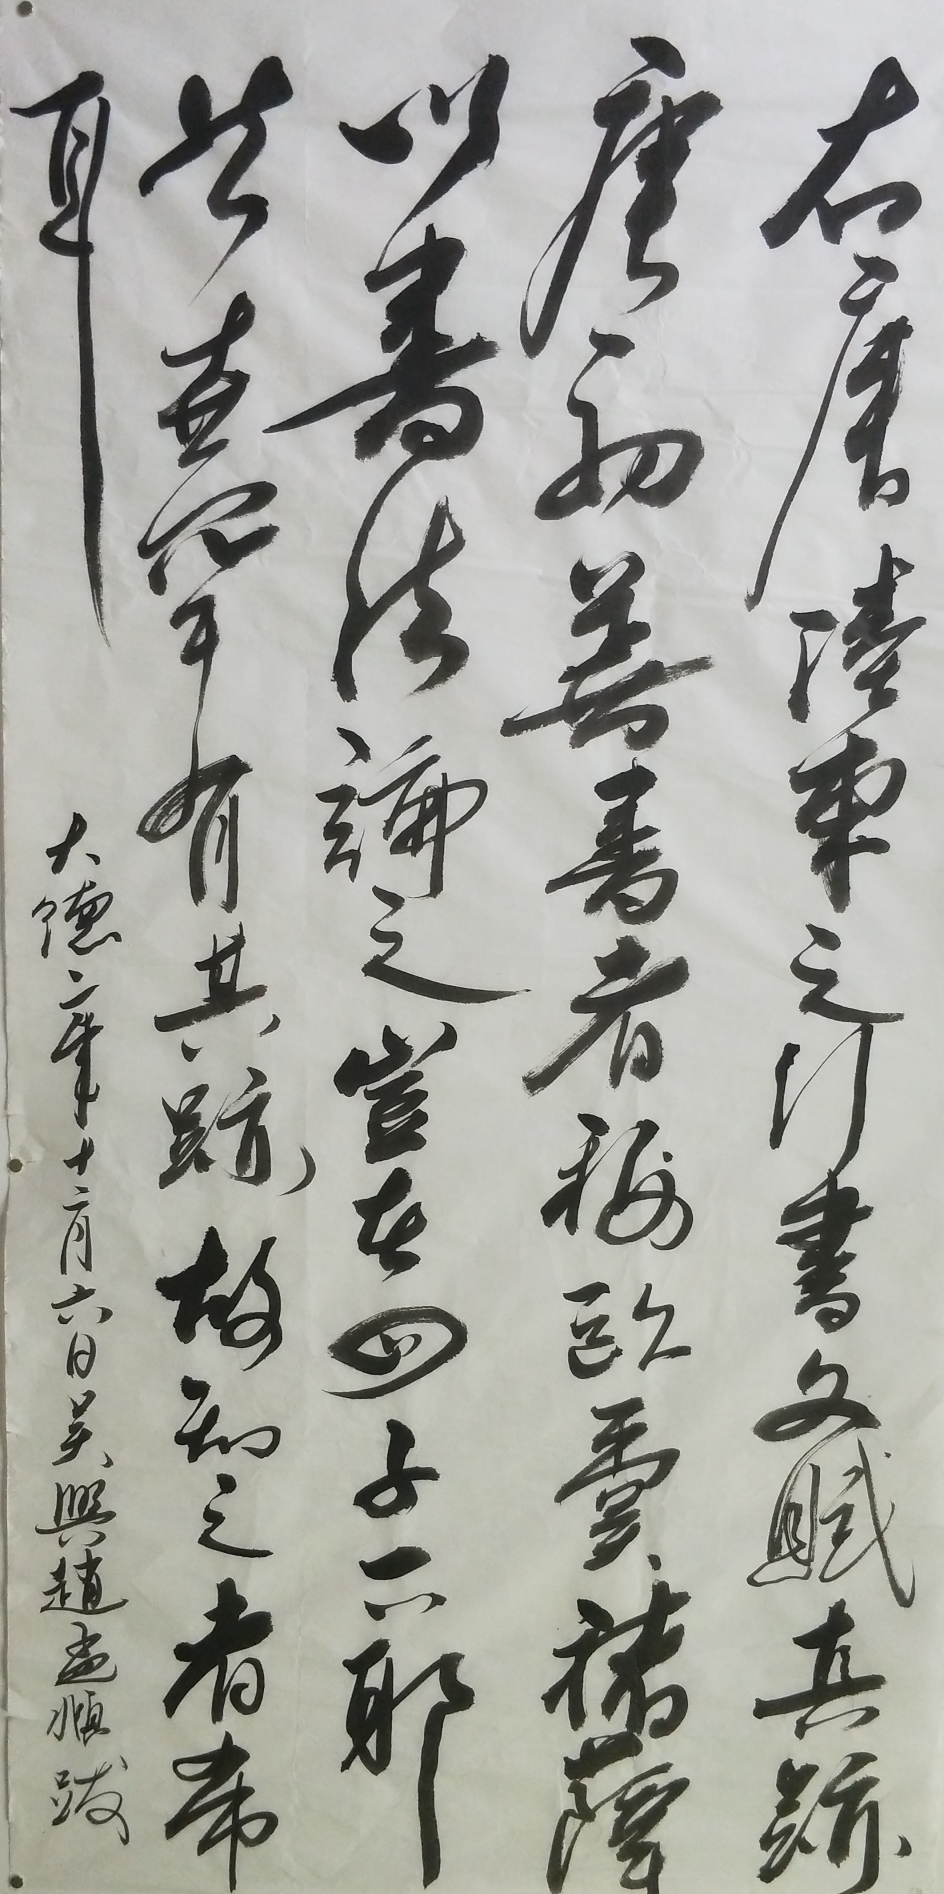 右唐陸柬之行書文賦真跡
唐初善書者稱歐虞褚薛
以書法論之豈在四子下耶
然世罕有其跡故知之者希
耳
大德二年十二月六日吳興趙孟頫跋